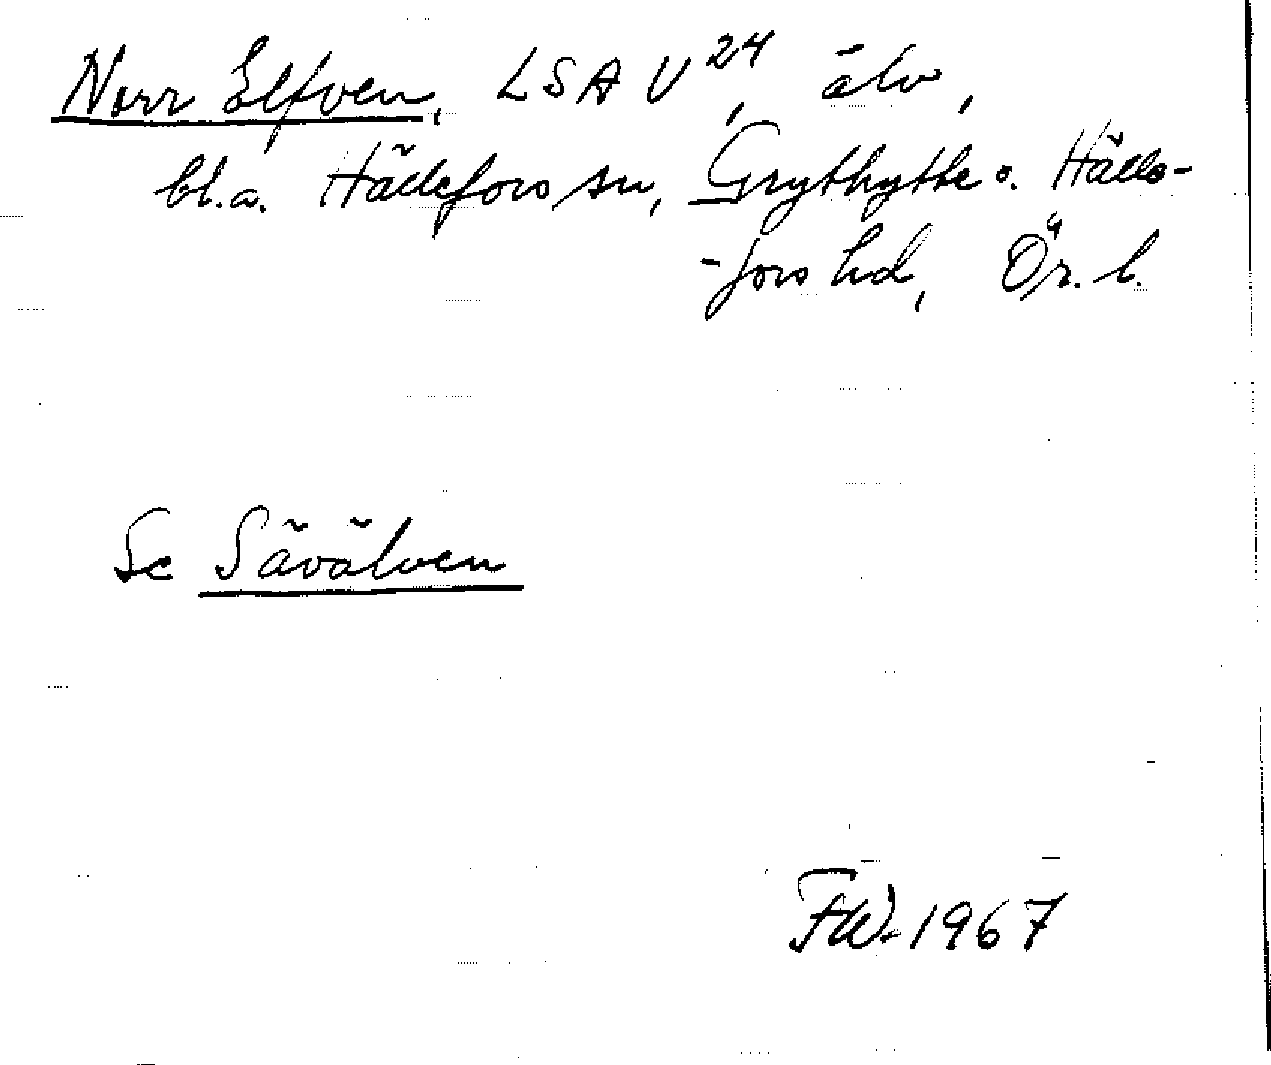 Norr Elfven, LSA V24, älv,
bl.a. Hällefors sn, Grythytte o. Hälle-
-fors hd, Ör. l.
Se Sävälven
FW. 1967